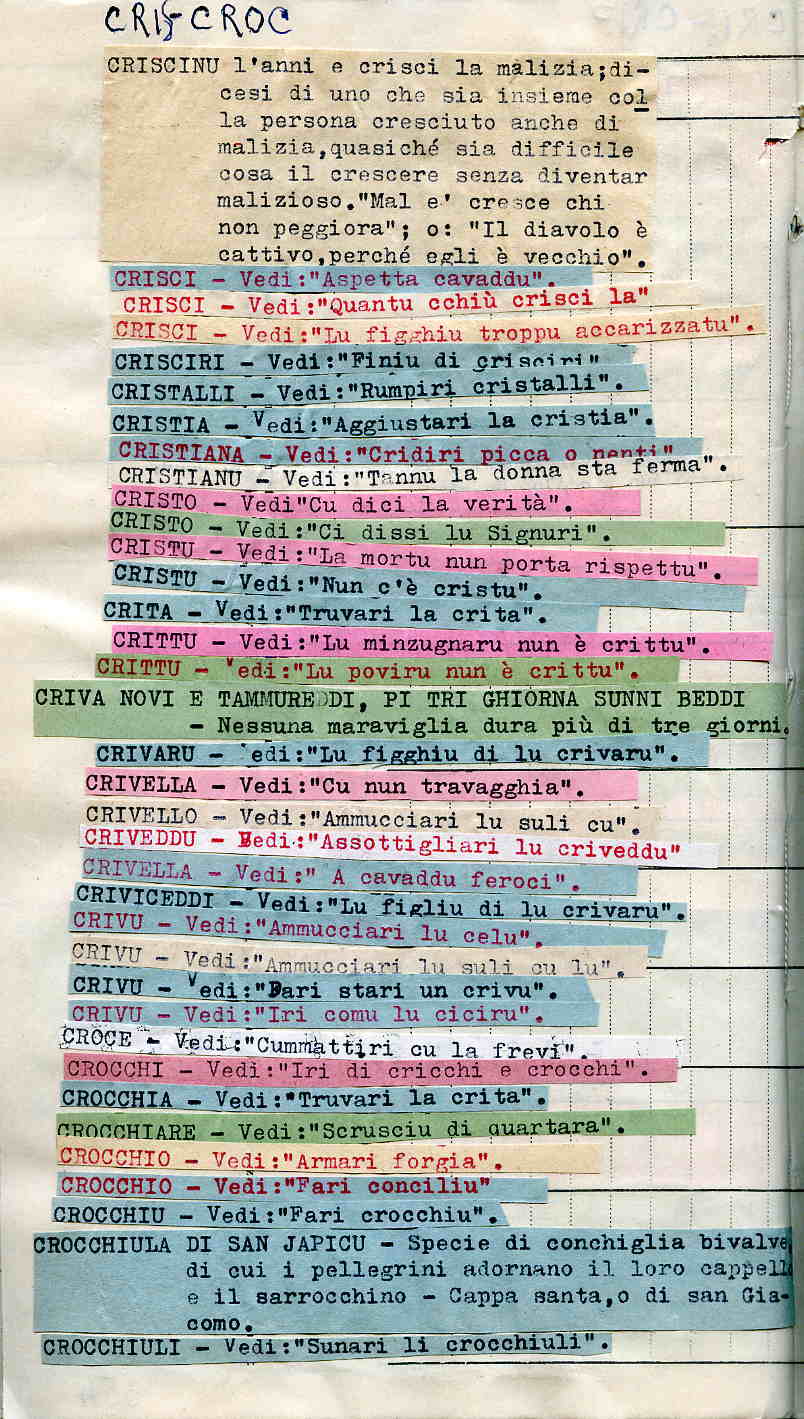 CRI-CROC
CRISCINU l'anni e crisci la malizia;di-
cesi di uno che sia insieme col
la persona cresciuto anche di
malizia,quasiché sia difficile
cosa il crescere senza diventar
malizioso."Mal e' cresce chi
non peggiora"; o: "Il diavolo è
cattivo,perché egli è vecchio".
CRISCI - Vedi:"Aspetta cavaddu".
CRISCI - Vedi:"Quantu cchiù crisci la"
CRISCI - Vedi:"Lu figghiu troppu accarizzatu".
CRISCIRI - Vedi:"Finiu di crisciri"
CRISTALLI - Vedi:"Rumpiri cristalli".
CRISTIA - Vedi:"Aggiustari la cristia".
CRISTIANA - Vedi:"Cridiri picca o nenti"
CRISTIANU - Vedi:"Tannu la donna sta ferma".
CRISTO - Vedi"Cu dici la verità".
CRISTO - Vedi:"Ci dissi lu Signuri".
CRISTU - Vedi:"La mortu nun porta rispettu".
CRISTU - Vedi:"Nun c'è cristu".
CRITA - Vedi:"Truvari la crita".
CRITTU - Vedi:"Lu minzugnaru nun è crittu".
CRITTU - Vedi:"Lu poviru nun è crittu".
CRIVA NOVI E TAMMUREDDI, PI TRI GHIORNA SUNNI BEDDI
- Nessuna maraviglia dura più di tre giorni.
CRIVARU - Vedi:"Lu figghiu di lu crivaru".
CRIVELLA - Vedi:"Cu nun travagghia".
CRIVELLO - Vedi:"Ammucciari lu suli cu".
CRIVEDDU - Vedi:"Assottigliari lu criveddu"
CRIVELLA - Vedi:" A cavaddu feroci".
CRIVICEDDI - Vedi:"Lu figliu di lu crivaru".
CRIVU - Vedi:"Ammucciari lu celu".
CRIVU - Vedi:"Ammucciari lu suli cu lu".
CRIVU - Vedi:"Fari stari un crivu".
CRIVU - Vedi:"Iri comu lu ciciru".
CROCE - Vedi:"Cummattiri cu la frevi".
CROCCHI - Vedi:"Iri di cricchi e crocchi".
CROCCHIA - Vedi:"Truvari la crita".
CROCCHIARE - Vedi:"Scrusciu di quartara".
CROCCHIO - Vedi:"Armari forgia".
CROCCHIO - Vedi:"Fari conciliu"
CROCCHIU - Vedi:"Fari crocchiu".
CROCCHIULA DI SAN JAPICU - Specie di conchiglia bivalve,
di cui i pellegrini adornano il loro cappello
e il sarrocchino - Cappa santa,o di san Gia-
como.
CROCCHIULI - Vedi:"Sunari li crocchiuli".